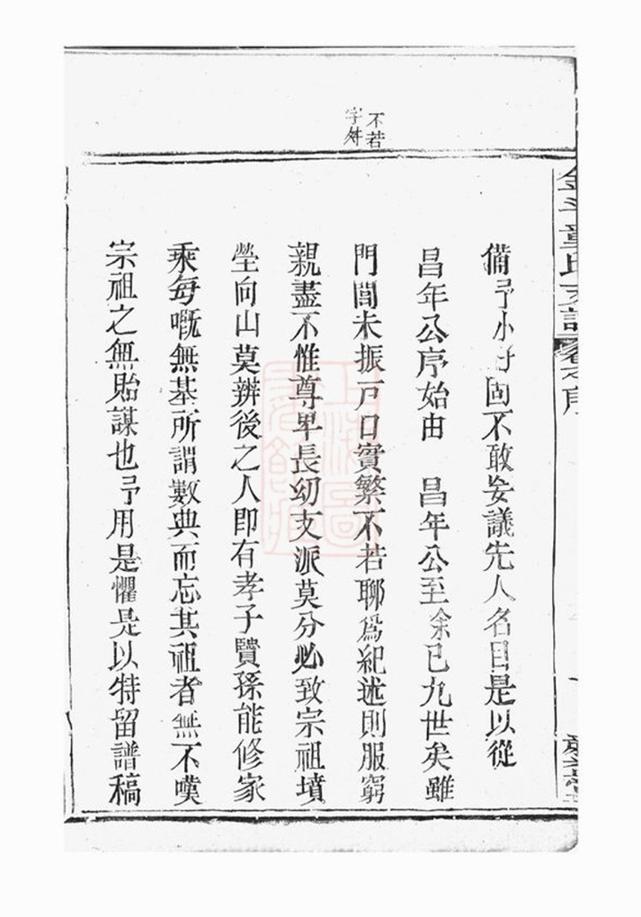 不若
字舛
備予小子固不敢妄議先人名目是以從
昌年公序始由　昌年公至余已九世矣雖
門閭未振戸口實繁不若聊為紀述則服窮
親盡不惟尊卑長幼支派莫分必致宗祖墳
塋向山莫辨後之人即有孝子賢孫能修家
乘每嘅無基所謂數典而忘其祖者無不嘆
宗祖之無貽謀也予用是懼是以特留譜稿